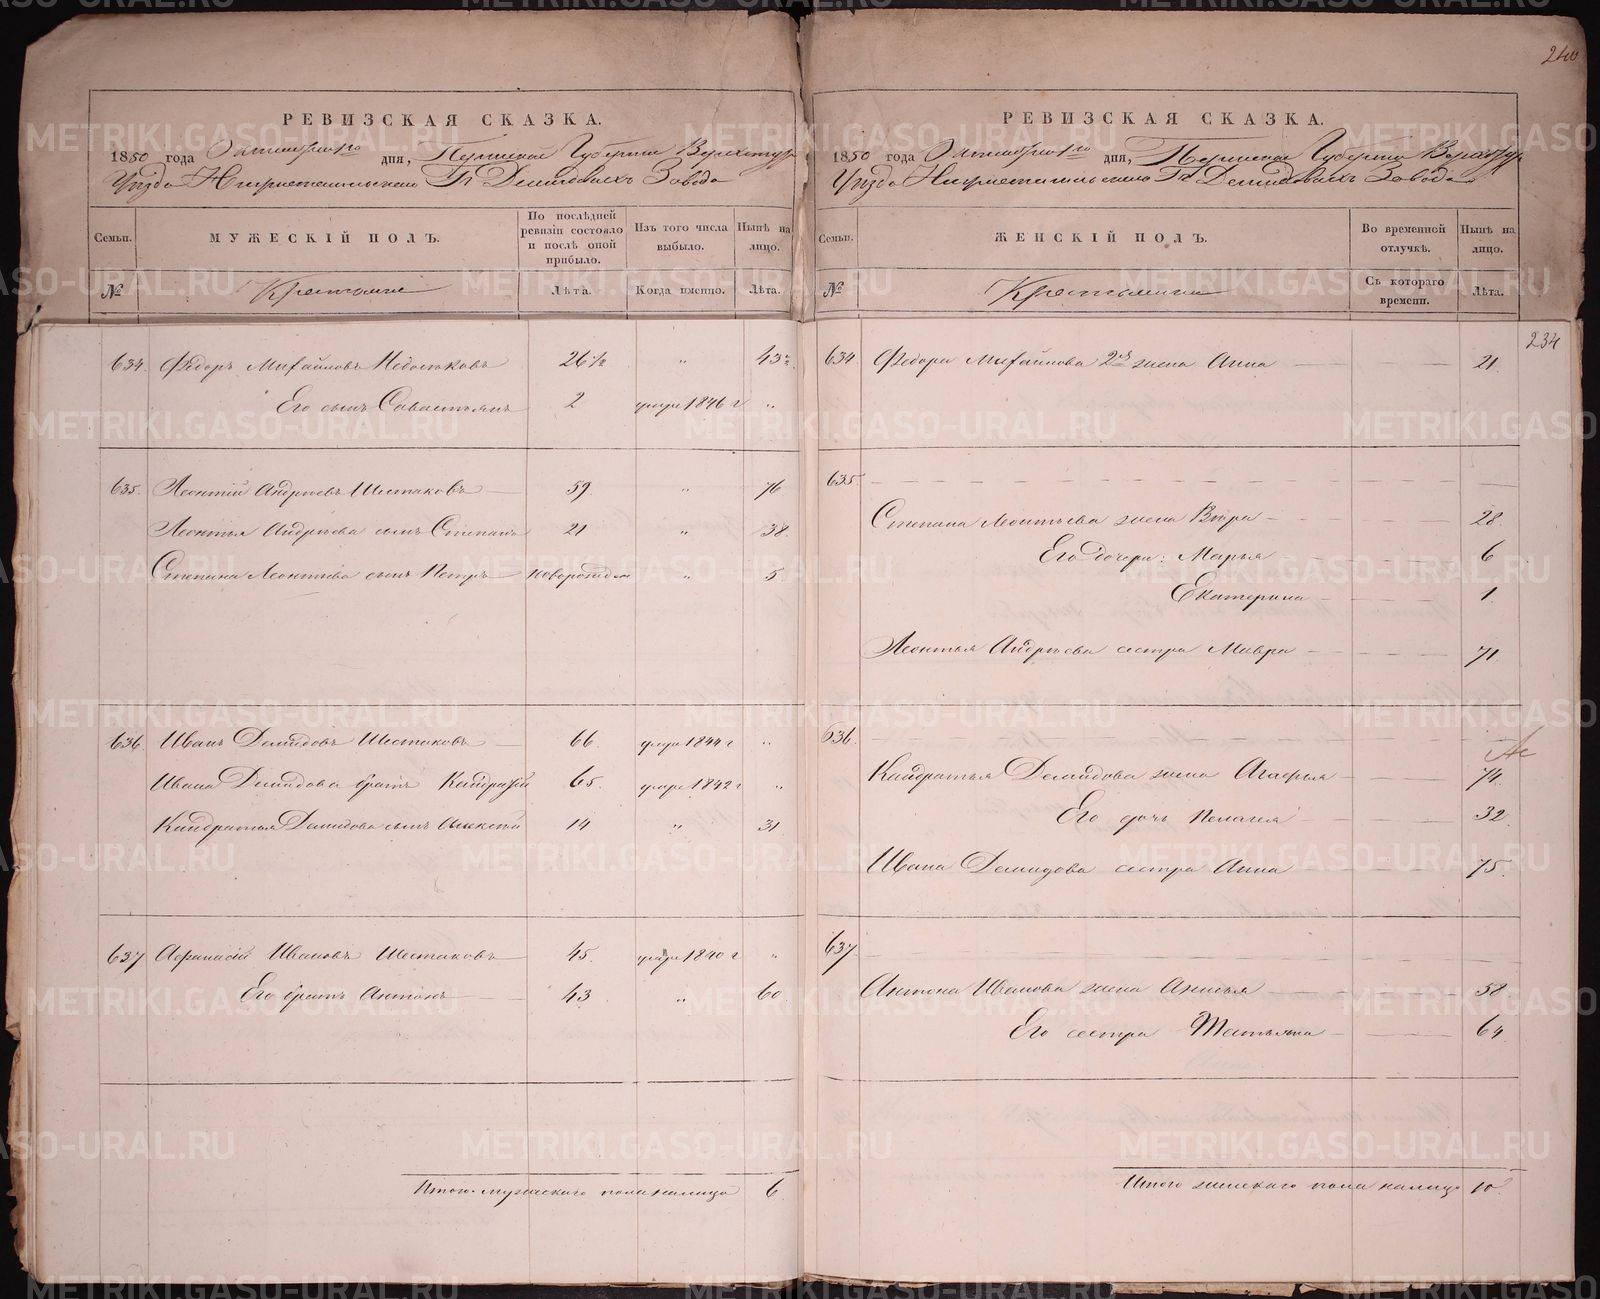 240
РЕВИЗСКАЯ СКАЗКА.
1850 года Октября дня, Пермской Губернии Верхотур
Уѣзда Нижнетагильскаго Гг Демидовыхъ Завода
Семьи. МУЖЕСКІЙ ПОЛЪ. По послѣдней ревизіи состояло и послѣ оной прибыло. Изъ того числа выбыло. Нынѣ на лицо.
№ Крестьяне Лѣта. Когда именно. Лѣта.
634. Федоръ Михайловъ 26½ " 43½
Его сынъ Савастьянъ 2 умре 1846 г "
635. Леонтій Андреевъ Шестаковъ 59. " 76
Леонтья Андрѣева сынъ Степанъ 21 " 38.
Степана Леонтьева сынъ Петръ новорожден " 5
636. Иванъ Демидовъ Шестаковъ 66. умре 1844 г "
Ивана Демидова братъ Кандратій 65. умре 1842 г "
Кандратья Демидова сынъ Алексей 14 " 31
637 Афанасій Ивановъ Шестаковъ 45. умре 1840 г "
Его братъ Антонъ 43 " 60.
Итого мужескаго пола налицо 6
РЕВИЗСКАЯ СКАЗКА.
1850 года Октября дня, Пермской Губерніи Верхотур
Уѣзда Нижнетагильскаго Гг Демидовыхъ Завода
Семьи. ЖЕНСКІЙ ПОЛЪ. Во временной отлучкѣ. Нынѣ на лицо.
№ Крестьянки Съ котораго времени. Лѣта.
234
634 Федора Михайлова 2я жена Анна 21.
635
Степана Леонтьева жена Вѣра 28.
Его дочери: Марья 6
Екатерина 1.
Леонтья Андрѣева сестра Мавра 71.
636.
Кандратья Демидова жена Агафья 74.
Его дочь Пелагея 32.
Ивана Демидова сестра Анна 75.
637.
Антона Иванова жена Анисья 58
Его сестра Татьяна 64.
Итого женскаго пола налицо 10.
METRIKI.GASO-URAL.RU